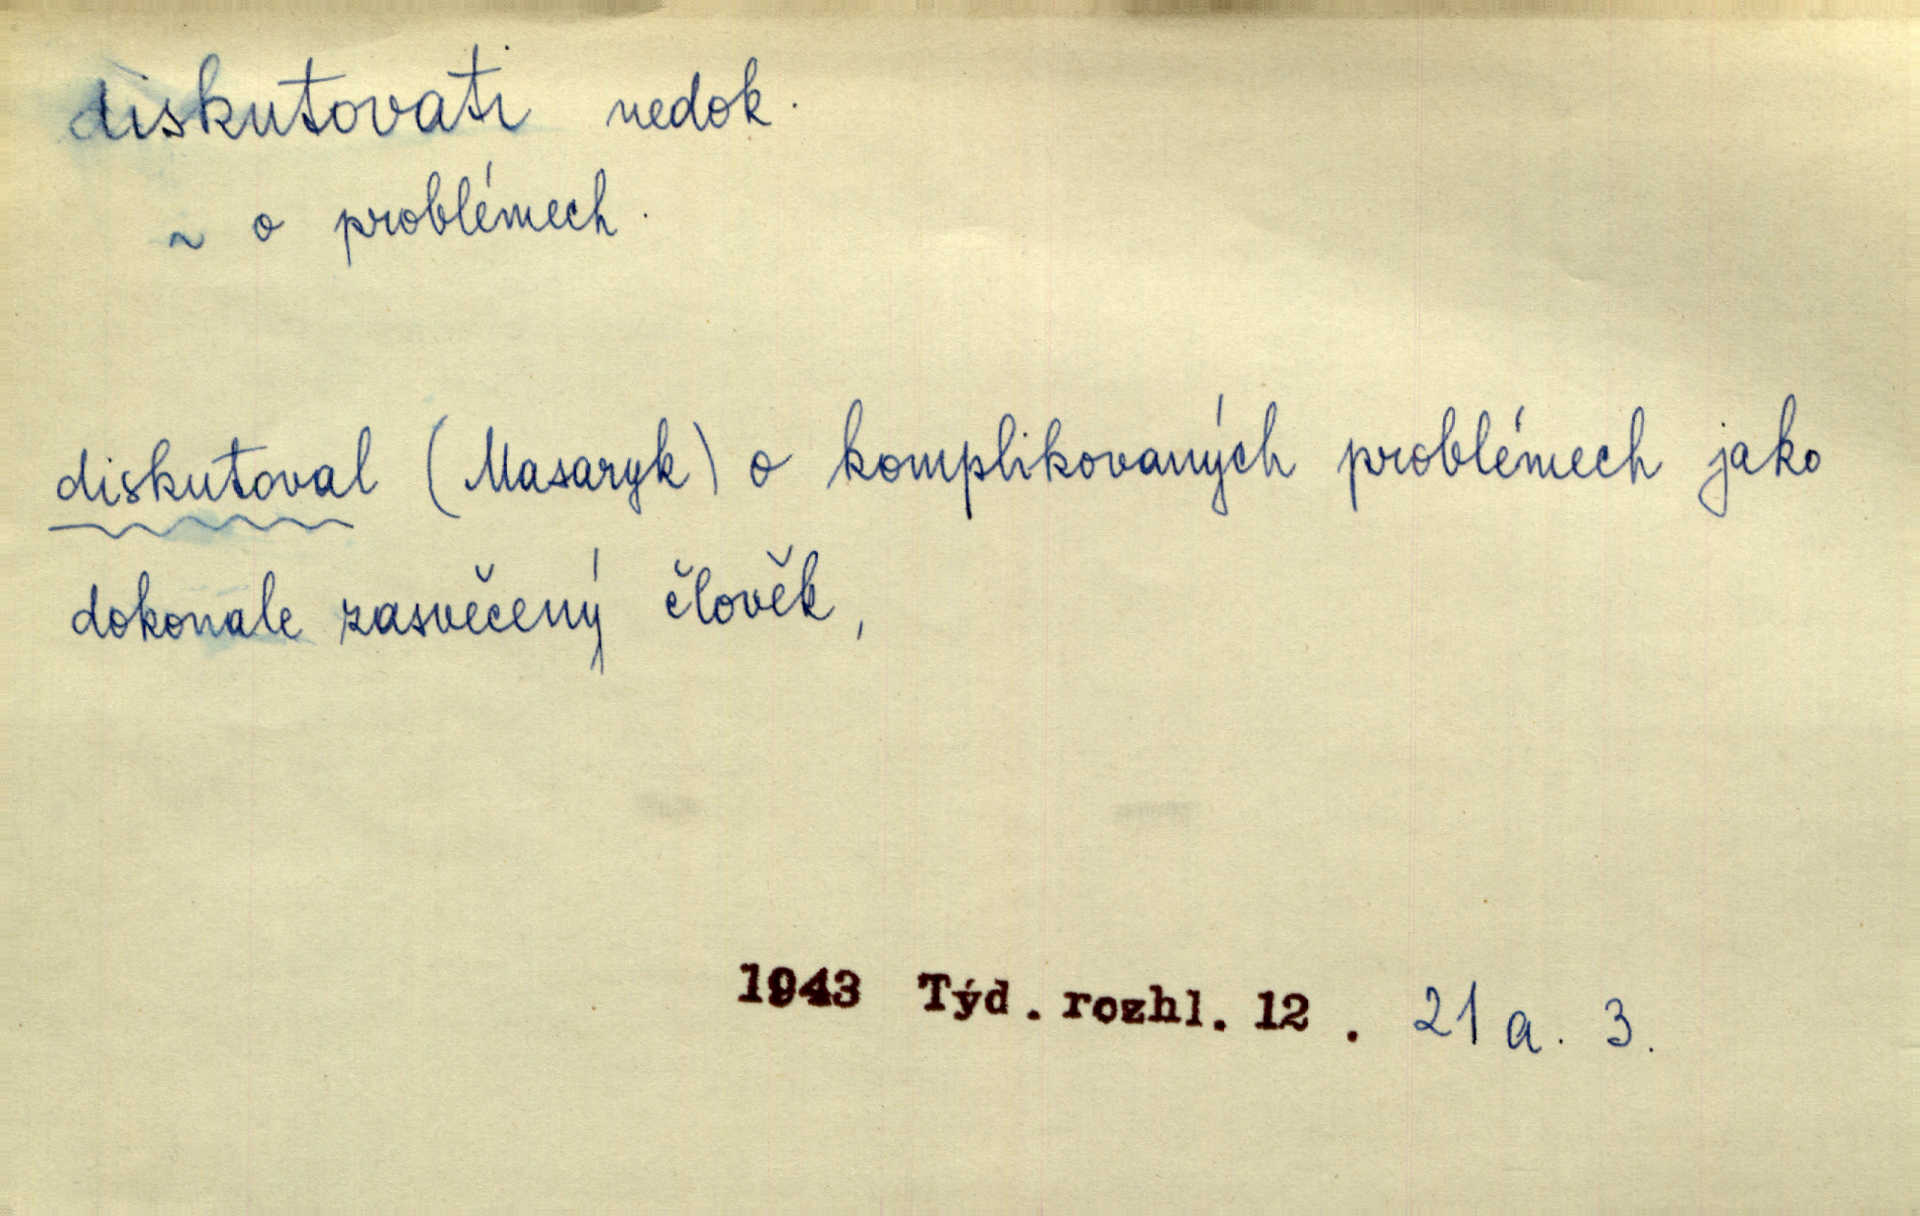 diskutovati nedok.
~ o problémech.
diskutoval (Masaryk) o komplikovaných problémech jako
dokonale zasvěcený člověk,
1943 Týd. rozhl. 12. 21 a. 3.